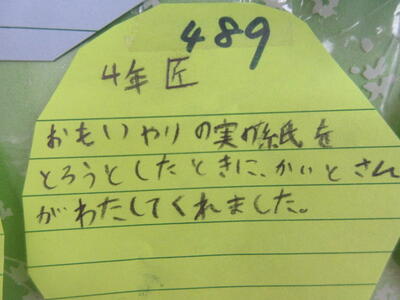 489
4年 匠
おもいやりの実の紙を
とろうとしたときに、かいとさん
がわたしてくれました。